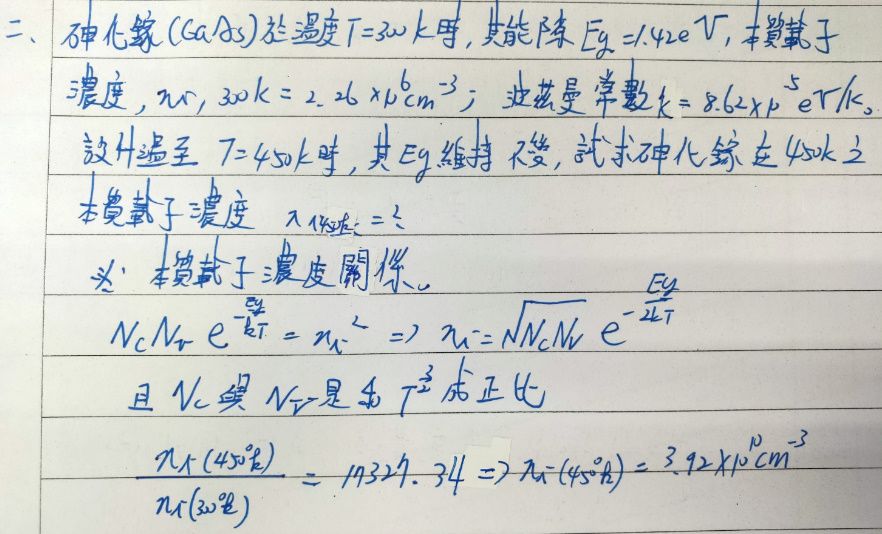 二、砷化鎵(GaAs)於溫度T=300k時,其能隙Eg=1.42eV,本質載子
濃度,ni,300k=2.26×10^6cm^-3; 波茲曼常數k=8.62×10^5eV/k。
設升溫至T=450k時,其Eg維持不變,試求砷化鎵在450k之
本質載子濃度 ni450k=?
※:本質載子濃度關係。
NcNv e^(-Eg/kT) = ni^2 => ni=√(NcNv) e^(-Eg/2kT)
且Nc與Nv是和T^(3/2)成正比
ni(450°k)/ni(300°k) = 17327.34 => ni(450°k) = 3.92×10^10cm^-3